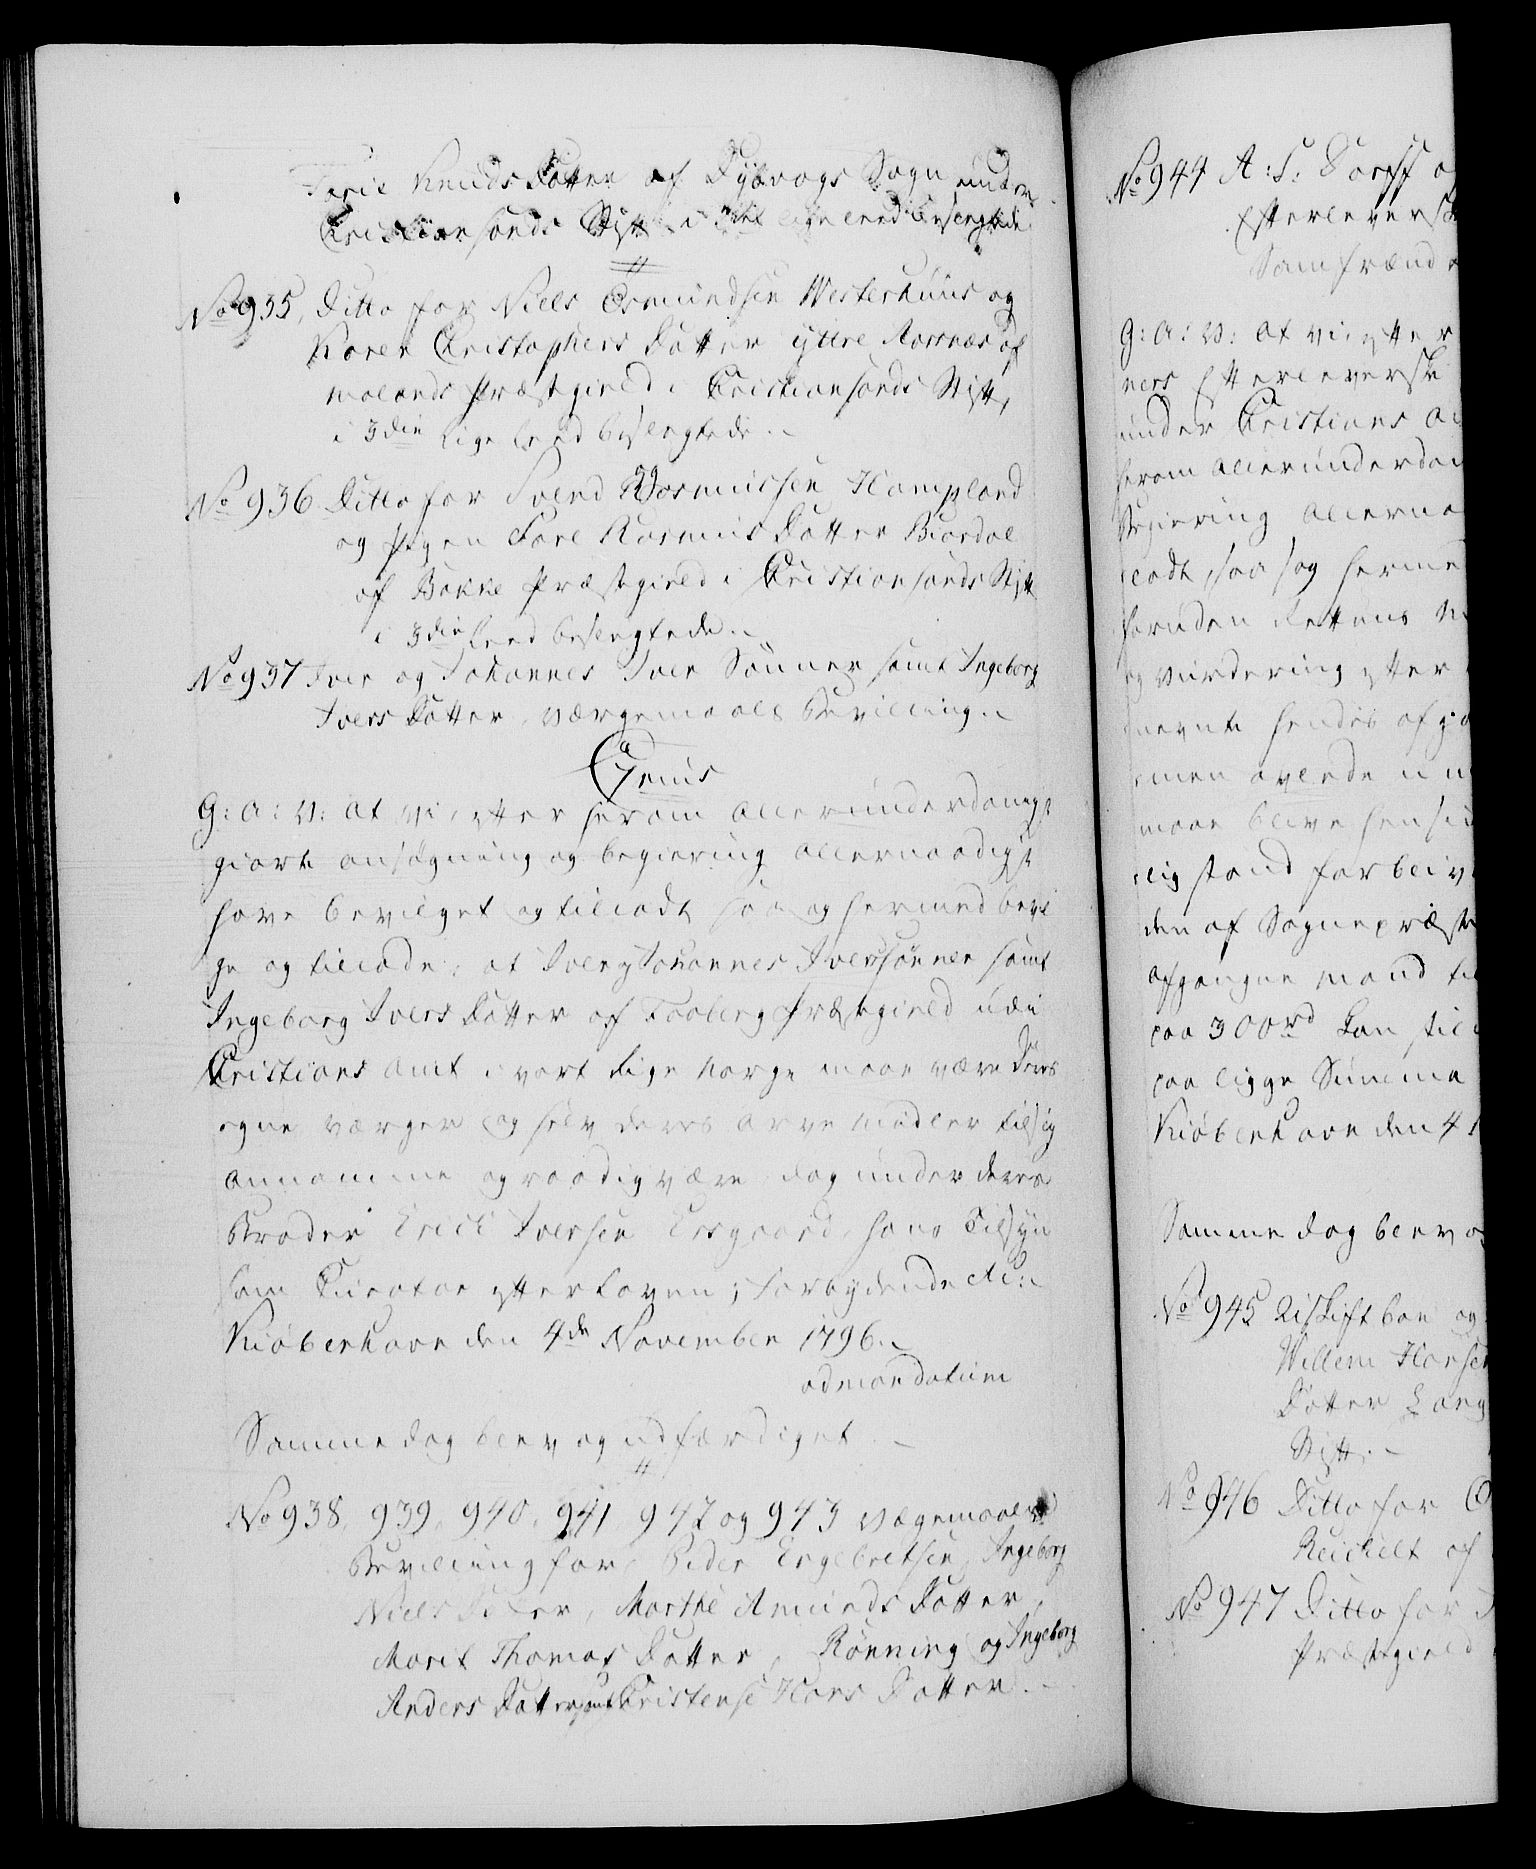 Torie Knuds Datter af Dybvogs Sogn under
Christiansands Stift i 3die lige leed besvogtede.
No 935, Ditto for Niels Osmundsen Westerhuus og
Karen Christophers Datter yttre Aarnæs af
molands Præstegield i Christiansands Stift,
i 3die lige leed besvogtede.
No 936 Ditto for Svend Rasmussen Hampland
og Pigen Tore Rasmus Datter Biordal
af Bakke Præstegield i Christiansands Stift
i 3die leed besvogtede.
No 937 Iver og Johannes Iver Sønner samt Ingeborg
Ivers Datter, værgemaals Bevilling.
Genus
G: A: V: at vi, efter herom allerunderdanigst
giorte ansøgning og begiering allernaadigst
have bevilget og tilladt, saa og hermed bevil
ge og tillade, at Iver og Johannes Iversønner samt
Ingeborg Ivers Datter af Faaberg Præstegield udi
Christians Amt i vort Rige Norge maae være deres
egne værger og selv deres arve midler til sig
annamme og raadig være dog under deres
Broder Erich Iversen Ersgaard, hans Tilsyn
som Curator efter Loven; Forbydende etc:
Kiøbenhavn den 4de November 1796.
ad mandatum
Samme dag blev og udfærdiget.
No 938, 939, 940, 941, 942 og 943 værgemaals
Bevilling for Peder Engebretsen, Ingeborg
Niels Datter, Marthe Amunds Datter,
Marit Thomas Datter, Rønning og Ingeborg
Anders Datter samt Christense Hans Datter.
No 944 A: S: Dorff
Efterleverske
Samfrænde
G: A: V: at vi, efter
ners Efterleverske
under Christians A
herom allerunderdan
Begiering allerna
ladt, saa og herme
foruden Rettens
og vurdering efter
nevnte hendes afg
men avlede u
maae blive hensid
lig stand forbliv
den af Sognepræst
afgangne mand
paa 300rd kan
paa ligge Summa
Kiøbenhavn den 4
Samme dag blev o
No 945 Uskiftet boe og
Willem Hansen
Datter Lang
Stift.
No 946 Ditto for
Reichelt af
No 947 Ditto for
Præstegield